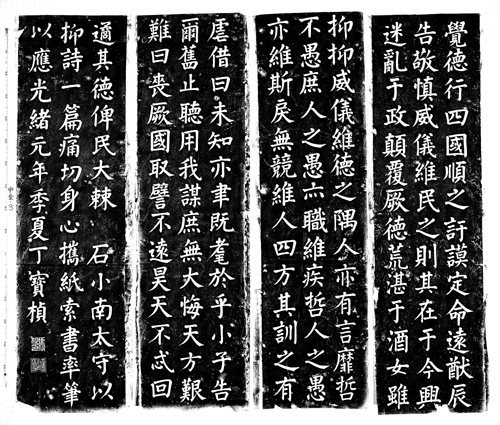 覺德行四國順之訏謨定命遠猷辰
告敬慎威儀維民之則其在于今興
迷亂于政顛覆厥德荒湛于酒女雖
抑抑威儀維德之隅人亦有言靡哲
不愚庶人之愚亦職維疾哲人之愚
亦維斯戾無競維人四方其訓之有
虐借曰未知亦聿既耄於乎小子告
爾舊止聽用我謀庶無大悔天方艱
難曰喪厥國取譬不遠昊天不忒回
遹其德俾民大棘 石小南太守以
抑詩一篇痛切身心攜紙索書率筆
以應光緒元年季夏丁寶楨